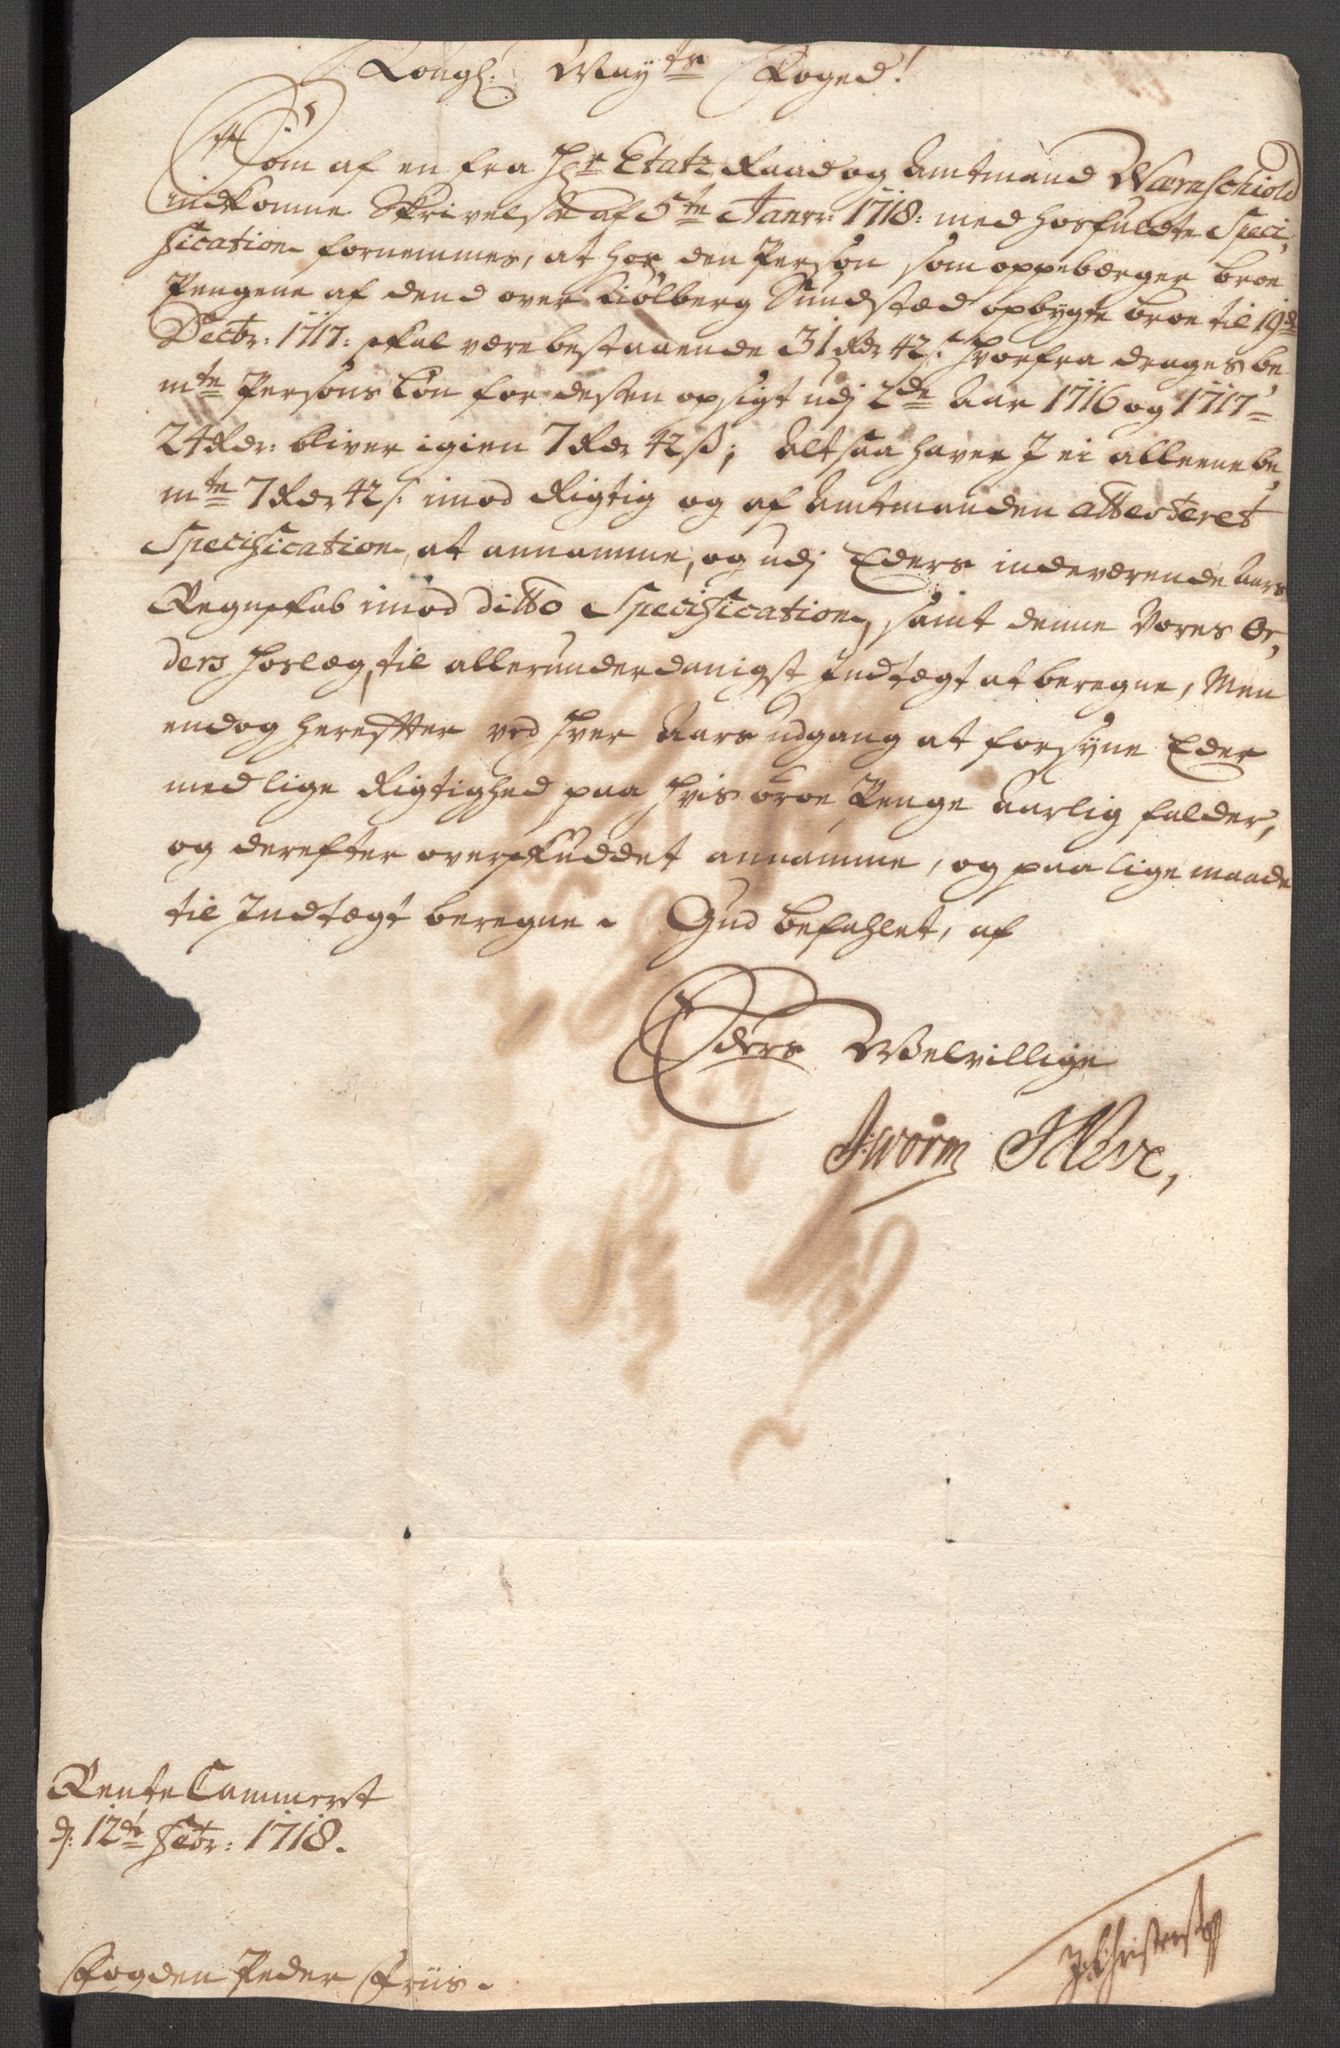 Kongl. Mayts Foged!
Som af en fra Hr Etatz Raad og Amtmand Warnschiold
indkomne Skrivelse af 5te Janvr: 1718: med hosfulte Speci,
fication fornemmes, at hos den Persohn som oppebærger broe
Pengene af dend over Kiølberg Sundstæd opbygte broe til 19de
Decbr: 1717: skal være bestaaende 31 Rdr 42 s: Hvorfra drages be,
mte Persons Løn for dessen opsigt udj 2de Aar 1716 og 1717
24 Rdr: bliver igien 7 Rdr 42 ß; Alt saa haver I ei alleene be,
mte 7 Rdr 42 s. imod Rigtig og af Amtmanden atteteret
Specification, at annamme, og udj Eders indeværende Aars
Regnskab imod ditto Specification, samt denne Vores Or,
ders Forlæg, til allerunderdanigst Indtægt at beregne, Men
endog herefter ved Hver Aars udgang at forsyne Eder
med lige Rigtighed paa Hvis broe Penge Aarlig falder,
og derefter overskuddet annamme, og paa lige maade
til Indtægt beregne. Gud befahlet, af
Eders Welvillige
J. Worm
Rente Cammeret
d: 12te Febr: 1718.
Fogden Peder Friis.